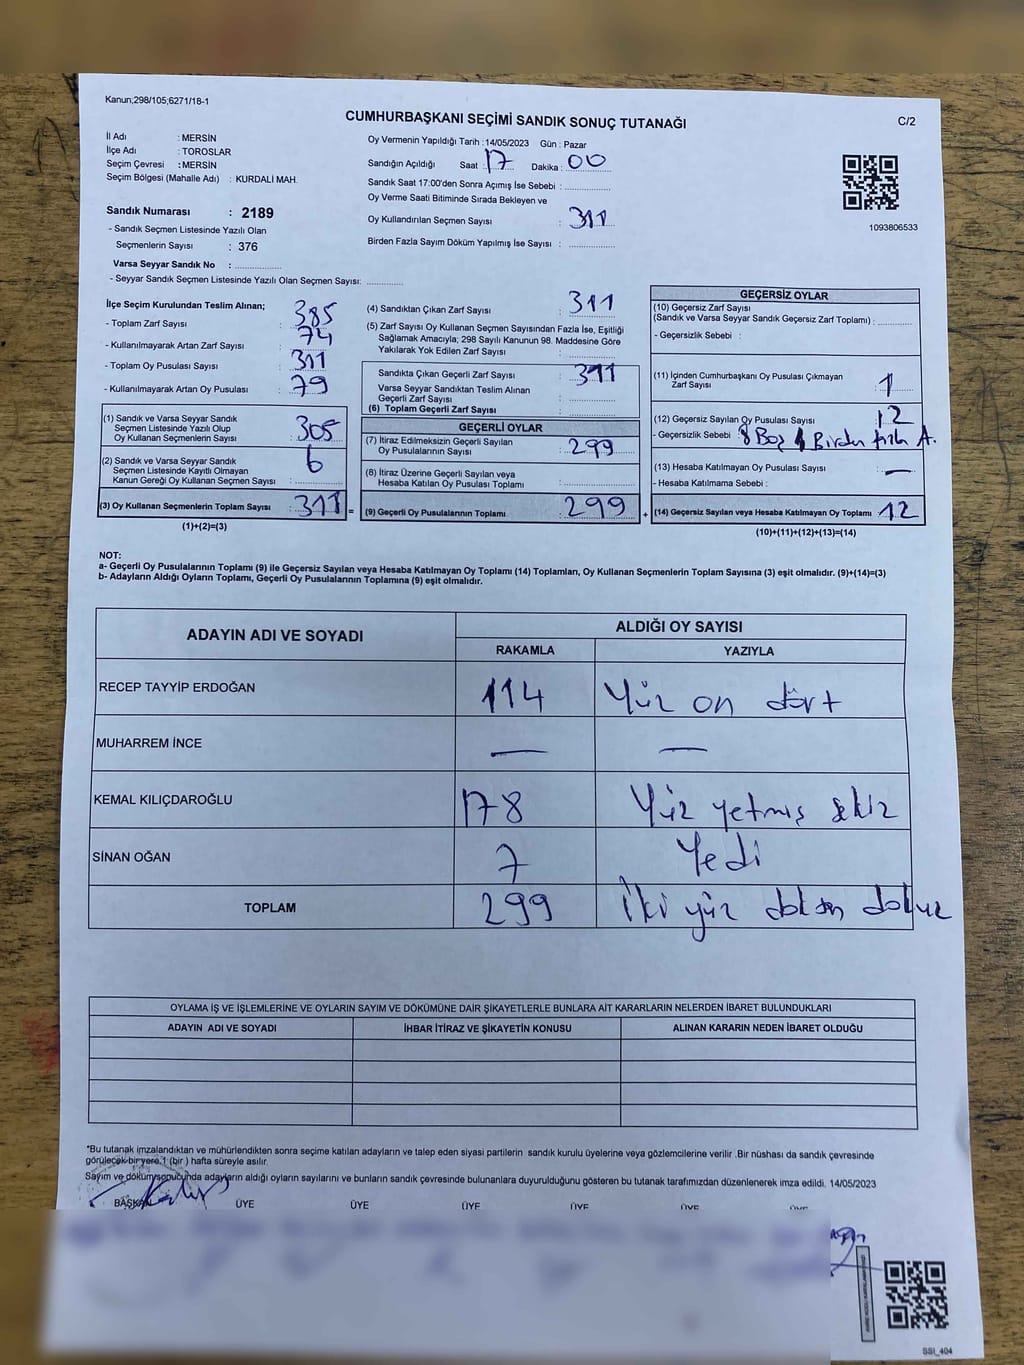 Kanun;298/105;6271/18-1
CUMHURBAŞKANI SEÇİMİ SANDIK SONUÇ TUTANAĞI
C/2
İl Adı : MERSİN
İlçe Adı : TOROSLAR
Seçim Çevresi : MERSİN
Seçim Bölgesi (Mahalle Adı) : KURDALİ MAH.
Sandık Numarası : 2189
- Sandık Seçmen Listesinde Yazılı Olan
Seçmenlerin Sayısı : 376
Varsa Seyyar Sandık No :
- Seyyar Sandık Seçmen Listesinde Yazılı Olan Seçmen Sayısı:
Oy Vermenin Yapıldığı Tarih :14/05/2023 Gün : Pazar
Sandığın Açıldığı Saat : 17 Dakika : 00
Sandık Saat 17:00'den Sonra Açımış İse Sebebi :
Oy Verme Saati Bitiminde Sırada Bekleyen ve
Oy Kullandırılan Seçmen Sayısı : 311
Birden Fazla Sayım Döküm Yapılmış İse Sayısı :
1093806533
İlçe Seçim Kurulundan Teslim Alınan;
- Toplam Zarf Sayısı : 385
- Kullanılmayarak Artan Zarf Sayısı : 74
- Toplam Oy Pusulası Sayısı : 311
- Kullanılmayarak Artan Oy Pusulası : 79
(1) Sandık ve Varsa Seyyar Sandık
Seçmen Listesinde Yazılı Olup
Oy Kullanan Seçmenlerin Sayısı : 305
(2) Sandık ve Varsa Seyyar Sandık
Seçmen Listesinde Kayıtlı Olmayan
Kanun Gereği Oy Kullanan Seçmen Sayısı : 6
(3) Oy Kullanan Seçmenlerin Toplam Sayısı : 311 =
(1)+(2)=(3)
(4) Sandıktan Çıkan Zarf Sayısı : 311
(5) Zarf Sayısı Oy Kullanan Seçmen Sayısından Fazla İse, Eşitliği
Sağlamak Amacıyla; 298 Sayılı Kanunun 98. Maddesine Göre
Yakılarak Yok Edilen Zarf Sayısı :
Sandıkta Çıkan Geçerli Zarf Sayısı : 311
Varsa Seyyar Sandıktan Teslim Alınan
Geçerli Zarf Sayısı :
(6) Toplam Geçerli Zarf Sayısı :
GEÇERLİ OYLAR
(7) İtiraz Edilmeksizin Geçerli Sayılan
Oy Pusulalarının Sayısı : 299
(8) İtiraz Üzerine Geçerli Sayılan veya
Hesaba Katılan Oy Pusulası Toplamı :
(9) Geçerli Oy Pusulalarının Toplamı : 299 +
GEÇERSİZ OYLAR
(10) Geçersiz Zarf Sayısı
(Sandık ve Varsa Seyyar Sandık Geçersiz Zarf Toplamı) :
- Geçersizlik Sebebi :
(11) İçinden Cumhurbaşkanı Oy Pusulası Çıkmayan
Zarf Sayısı : 1
(12) Geçersiz Sayılan Oy Pusulası Sayısı : 12
- Geçersizlik Sebebi : 8 Boş Birden fazla A.
(13) Hesaba Katılmayan Oy Pusulası Sayısı : —
- Hesaba Katılmama Sebebi :
(14) Geçersiz Sayılan veya Hesaba Katılmayan Oy Toplamı : 12
(10)+(11)+(12)+(13)=(14)
NOT:
a- Geçerli Oy Pusulalarının Toplamı (9) ile Geçersiz Sayılan veya Hesaba Katılmayan Oy Toplamı (14) Toplamları, Oy Kullanan Seçmenlerin Toplam Sayısına (3) eşit olmalıdır. (9)+(14)=(3)
b- Adayların Aldığı Oyların Toplamı, Geçerli Oy Pusulalarının Toplamına (9) eşit olmalıdır.
ADAYIN ADI VE SOYADI ALDIĞI OY SAYISI
RAKAMLA YAZIYLA
RECEP TAYYİP ERDOĞAN 114 Yüz on dört
MUHARREM İNCE — —
KEMAL KILIÇDAROĞLU 178 Yüz yetmiş sekiz
SİNAN OĞAN 7 Yedi
TOPLAM 299 İki yüz doksan dokuz
OYLAMA İŞ VE İŞLEMLERİNE VE OYLARIN SAYIM VE DÖKÜMÜNE DAİR ŞİKAYETLERLE BUNLARA AİT KARARLARIN NELERDEN İBARET BULUNDUKLARI
ADAYIN ADI VE SOYADI İHBAR İTİRAZ VE ŞİKAYETİN KONUSU ALINAN KARARIN NEDEN İBARET OLDUĞU
*Bu tutanak imzalandıktan ve mühürlendikten sonra seçime katılan adayların ve talep eden siyasi partilerin sandık kurulu üyelerine veya gözlemcilerine verilir .Bir nüshası da sandık çevresinde
görülecek bir yere 1 (bir ) hafta süreyle asılır.
Sayım ve döküm sonucunda adayların aldığı oyların sayılarını ve bunların sandık çevresinde bulunanlara duyurulduğunu gösteren bu tutanak tarafımızdan düzenlenerek imza edildi. 14/05/2023
BAŞKAN ÜYE ÜYE ÜYE ÜYE ÜYE ÜYE
SSI_404